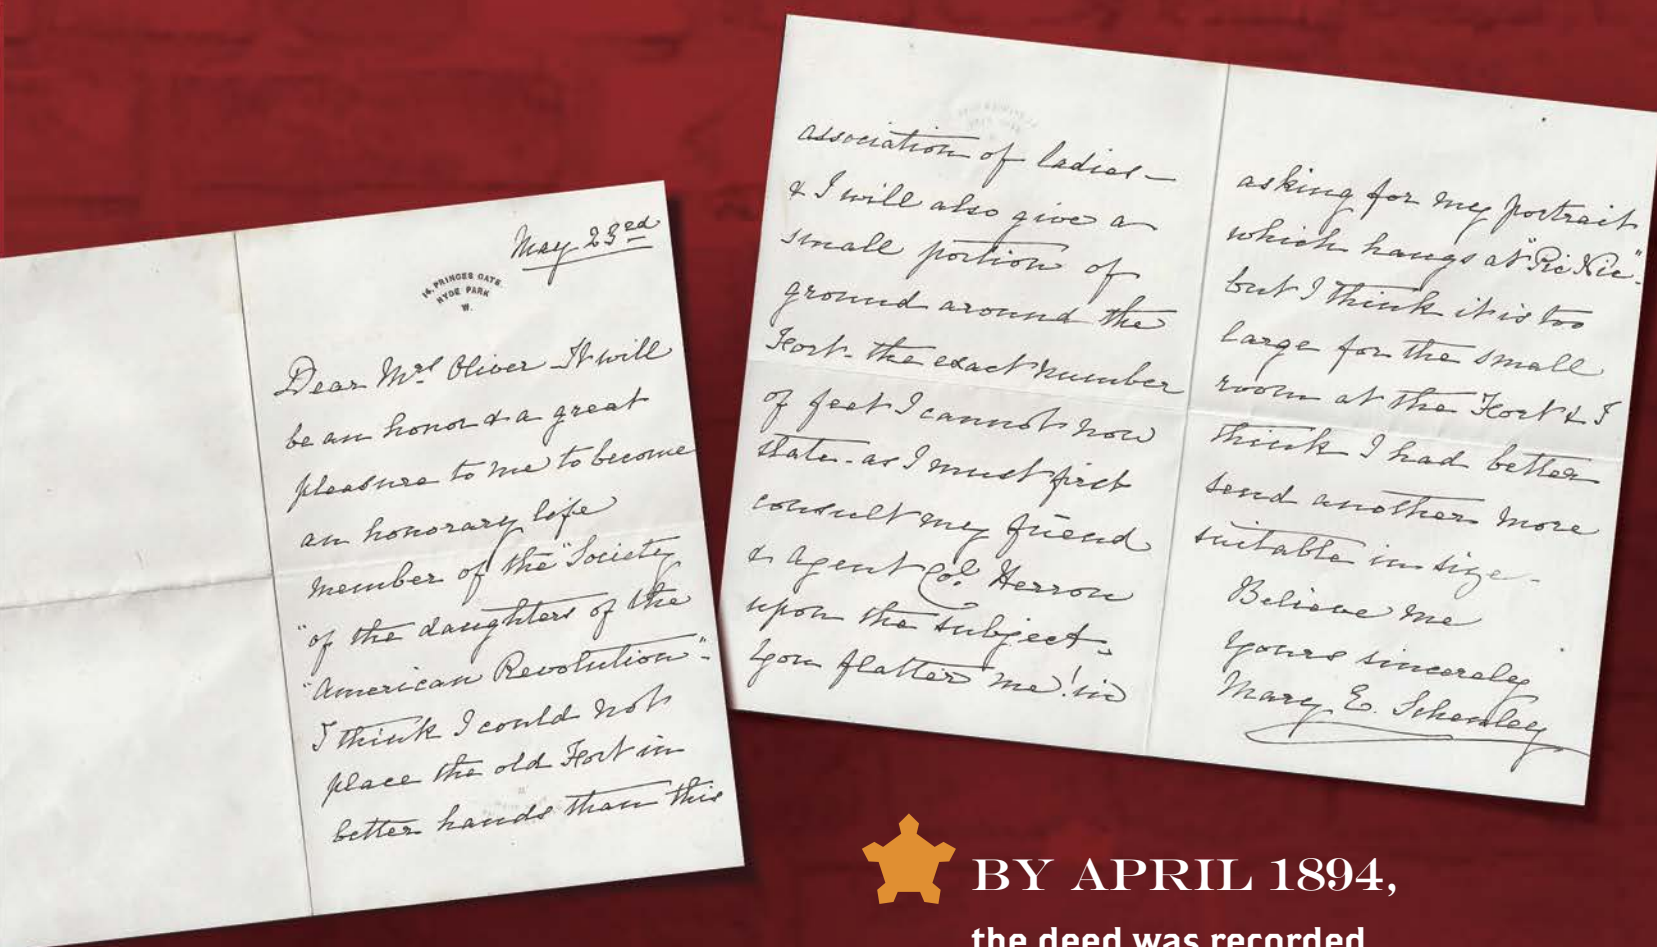 May 23rd
14, PRINCES GATE.
HYDE PARK
W.
Dear Mrs Oliver It will
be an honor & a great
pleasure to me to become
an honorary life
member of the "Society
"of the daughters of the
"American Revolution".
I think I could not
place the old Fort in
better hands than this
association of ladies—
& I will also give a
small portion of
ground around the
Fort - the exact number
of feet I cannot now
state - as I must first
consult my friend
& agent Col. Herron
upon the subject.
You flatter me! in
asking for my portrait
which hangs at "Pic Nic".
but I think it is too
large for the small
room at the Fort & I
think I had better
send another more
suitable in size -
Believe me
yours sincerely
Mary E. Schenley
BY APRIL 1894,
the deed was recorded